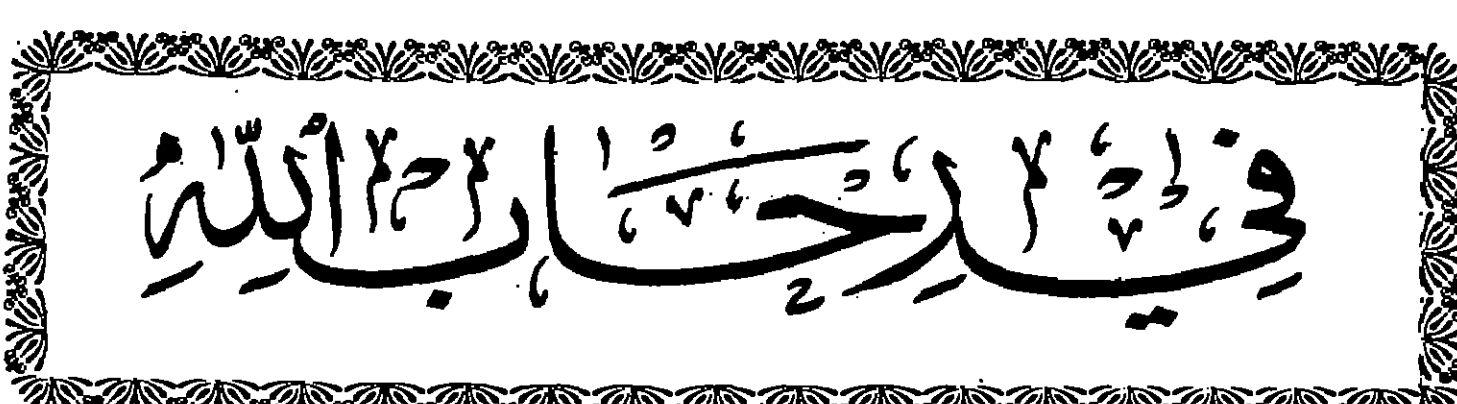 فِي رِحَابِ اللهِ